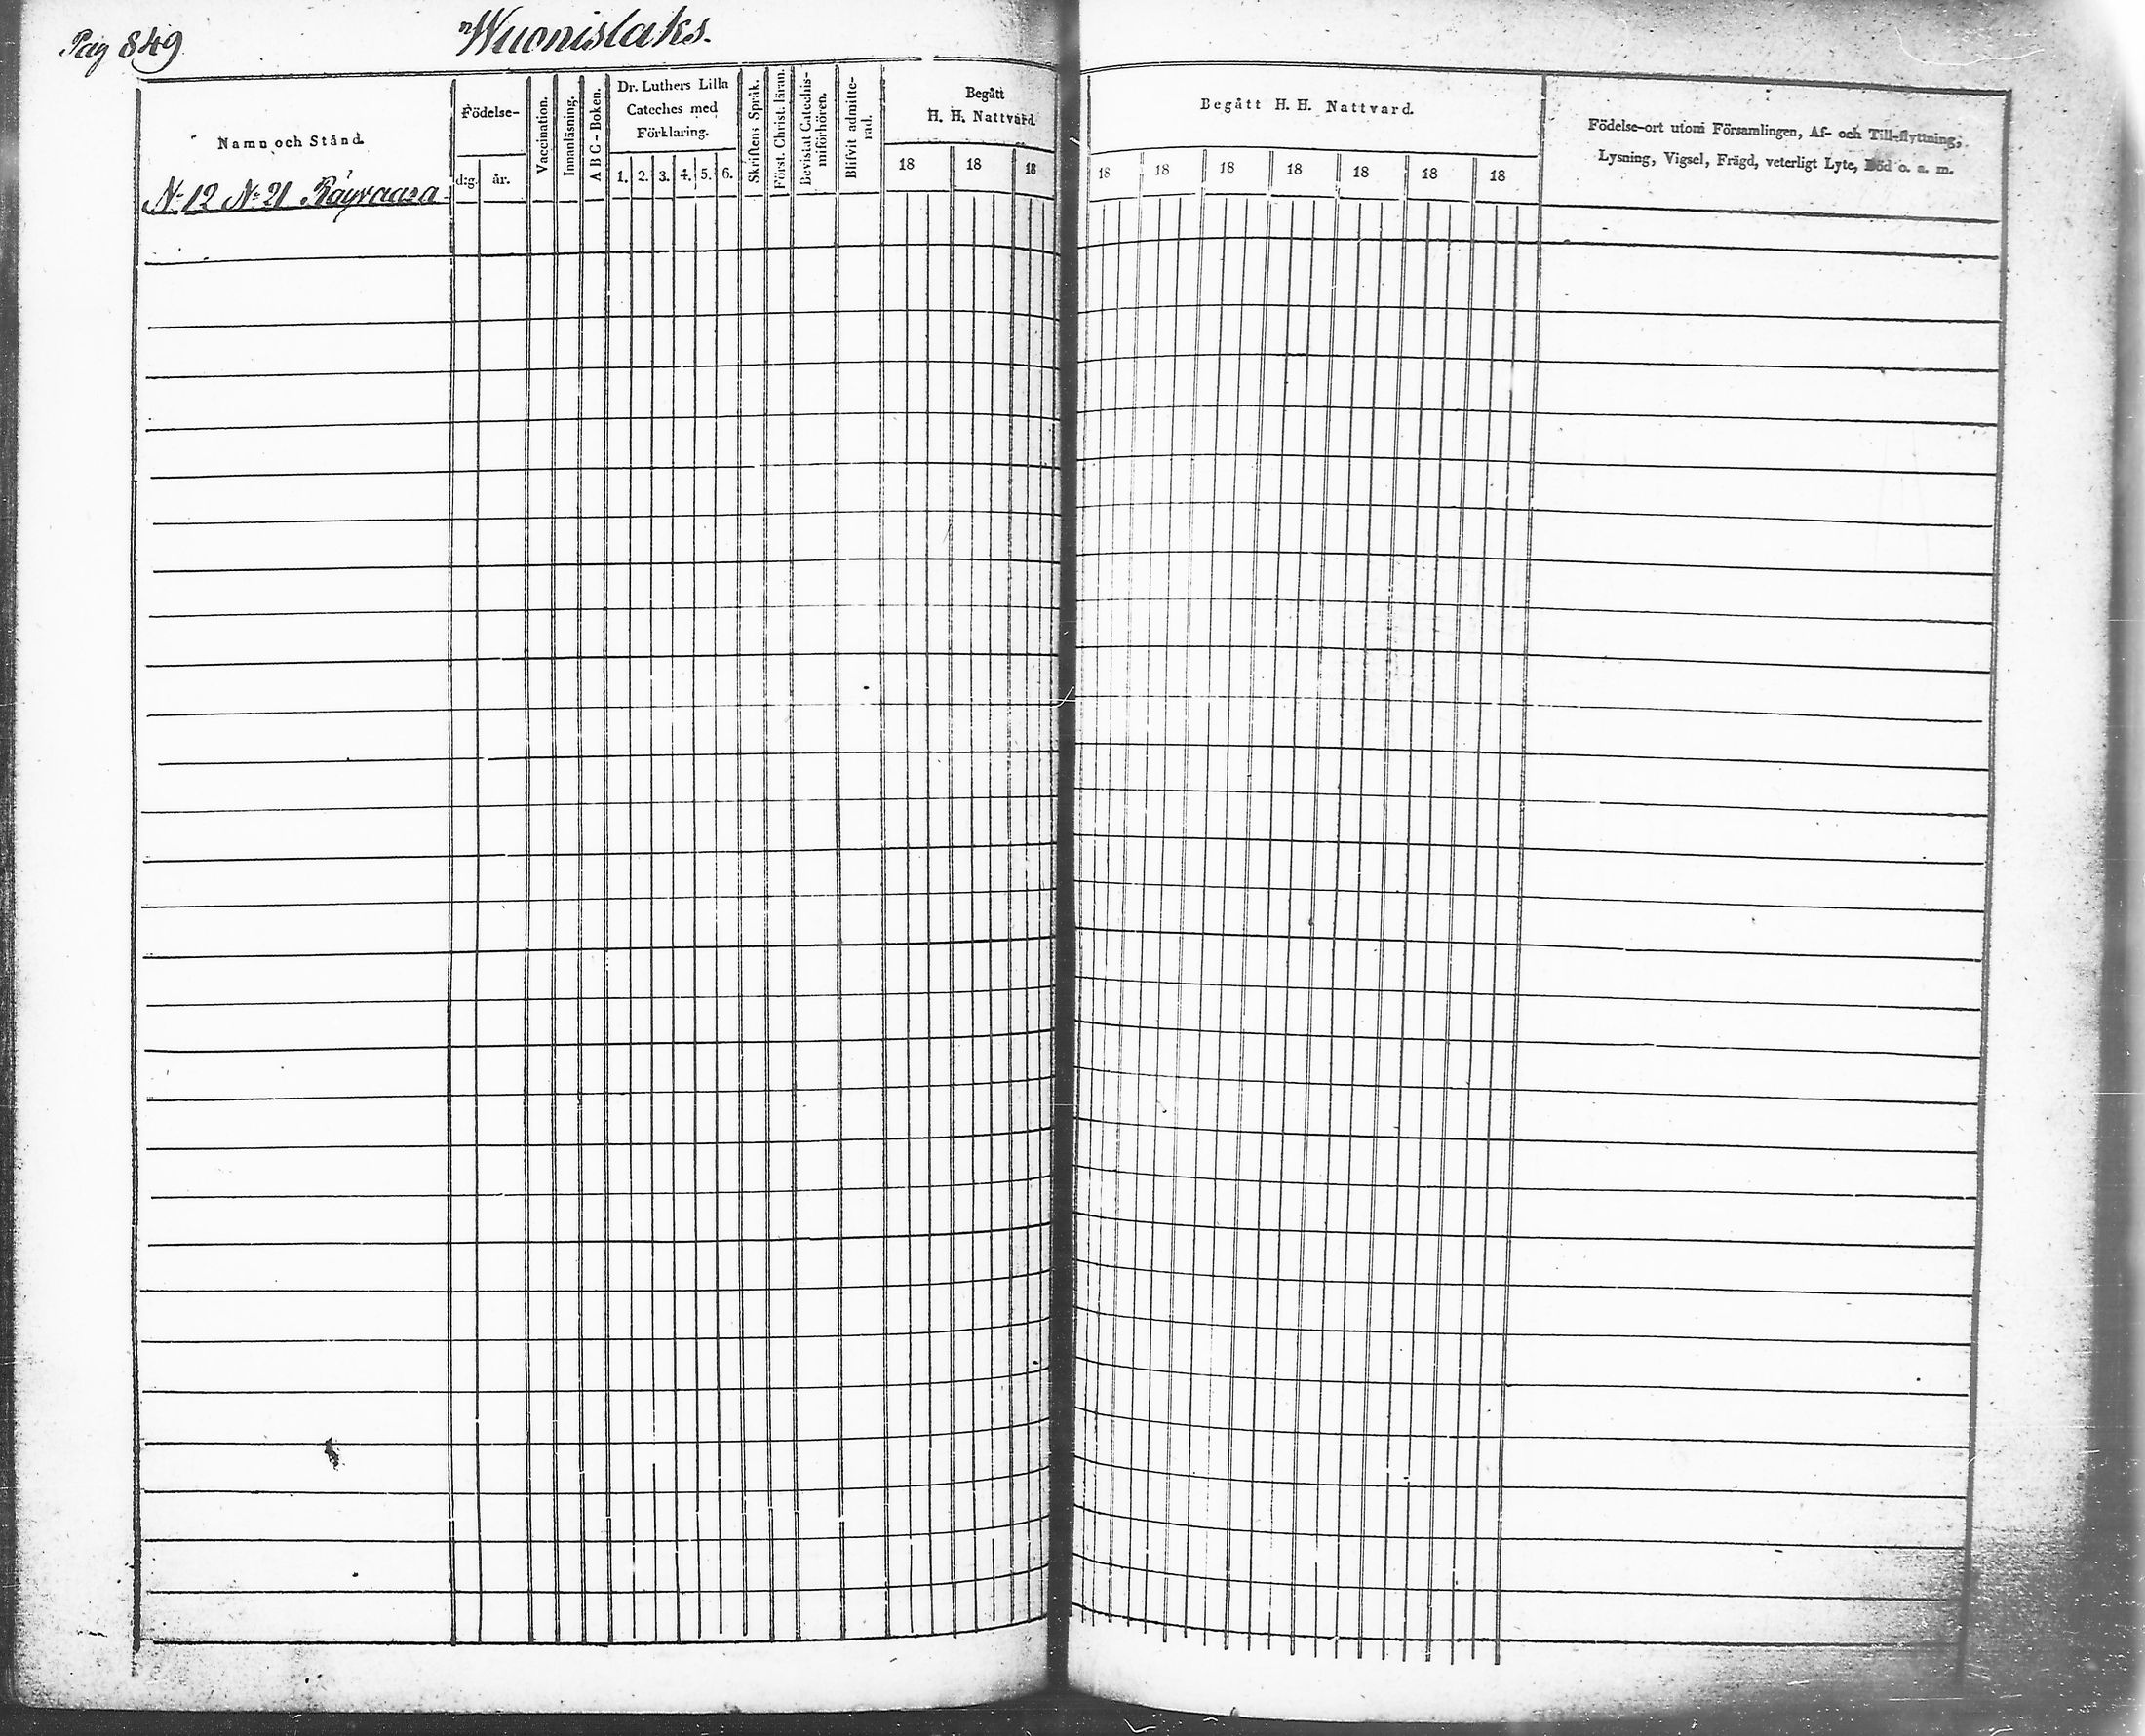 Pag 849
Wuonislaks.
Namn och Stånd.
Födelse-
d:g. år.
Vaccination.
Innanläsning.
A B C - Boken.
Dr. Luthers Lilla
Cateches med
Förklaring.
1. 2. 3. 4. 5. 6.
Skriftens Språk.
Först. Christ. läran.
Bevistat Catechis-
miförhören.
Blifvit admitte-
rad.
Begått
H. H. Nattvard.
18 18 18
Begått H. H. Nattvard.
18 18 18 18 18 18 18
Födelse-ort utom Församlingen, Af- och Till-flyttning,
Lysning, Vigsel, Frägd, veterligt Lyte, Död o. a. m.
N:12 N:21